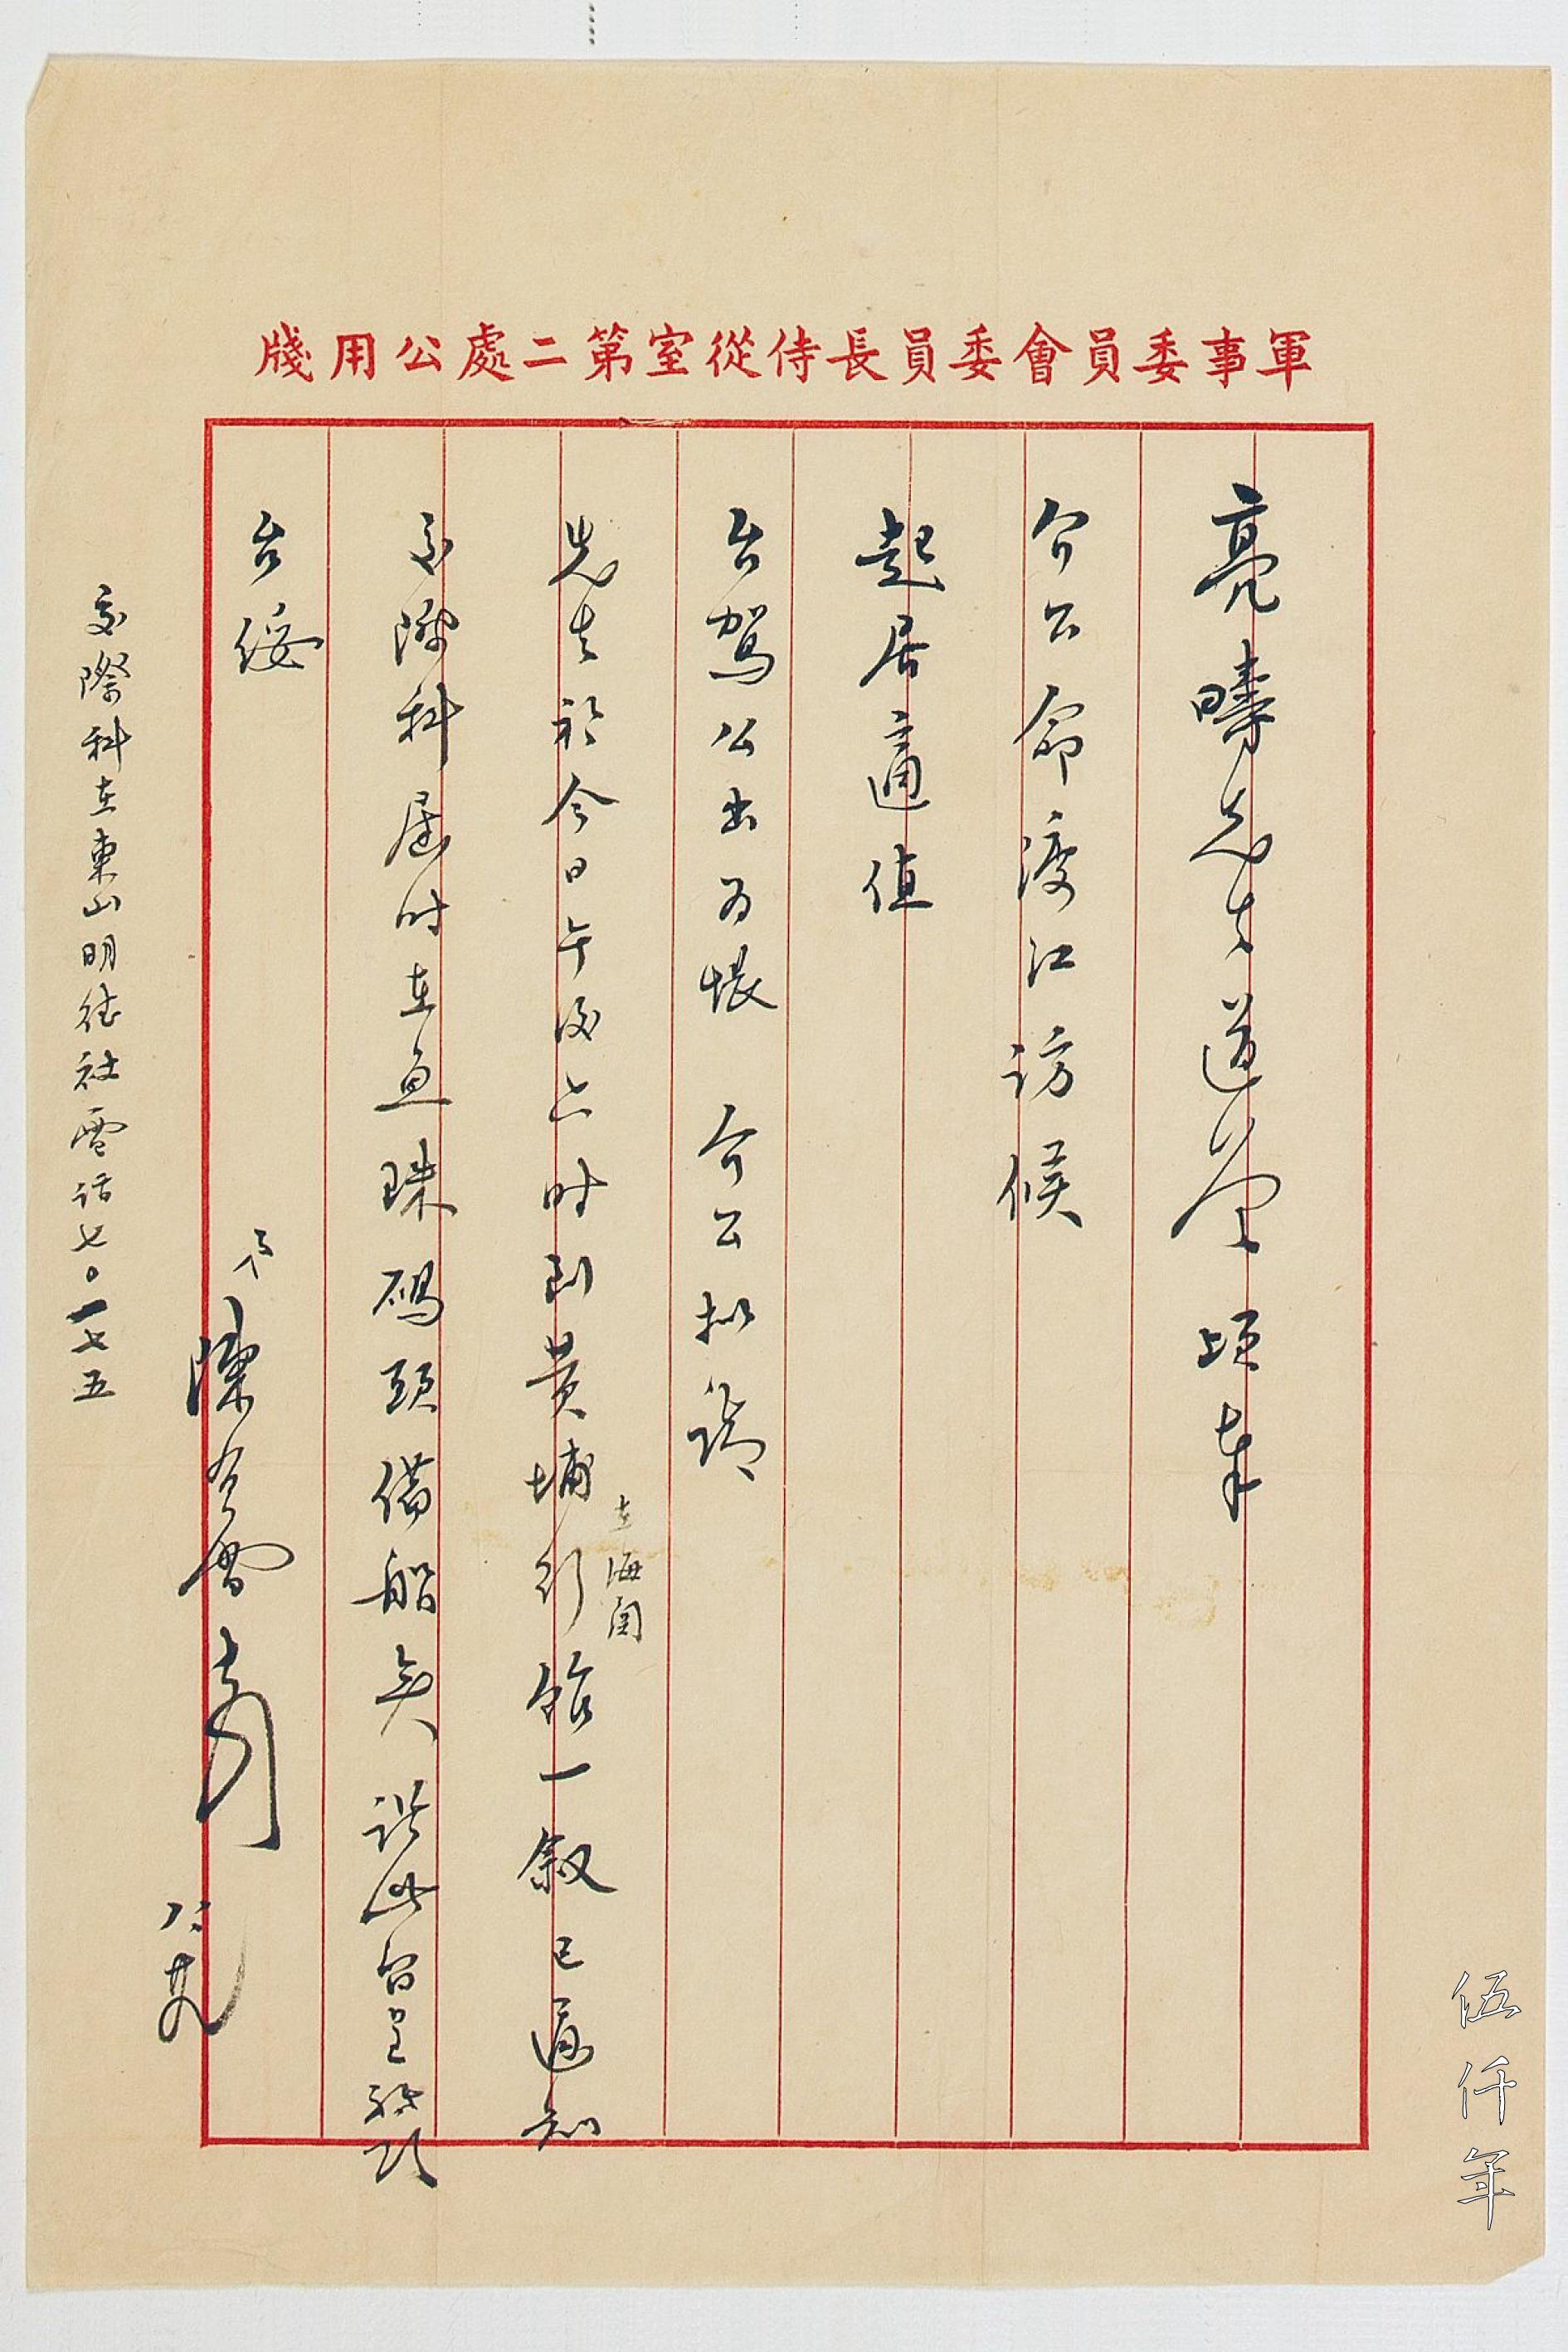 軍事委員會委員長侍從室第二處公用牋
亮疇先生道鑒 頃奉
介公命渡江訪候
起居適值
台駕公出為悵 介公擬請
先生於今日午後六時到黃埔行館一叙已通知
在海關
交際科屆時在魚珠碼頭備船矣 謹此留呈敬頌
台綏
弟陳
八 廿九
交際科在東山明德社電話七〇一七五
伍仟年